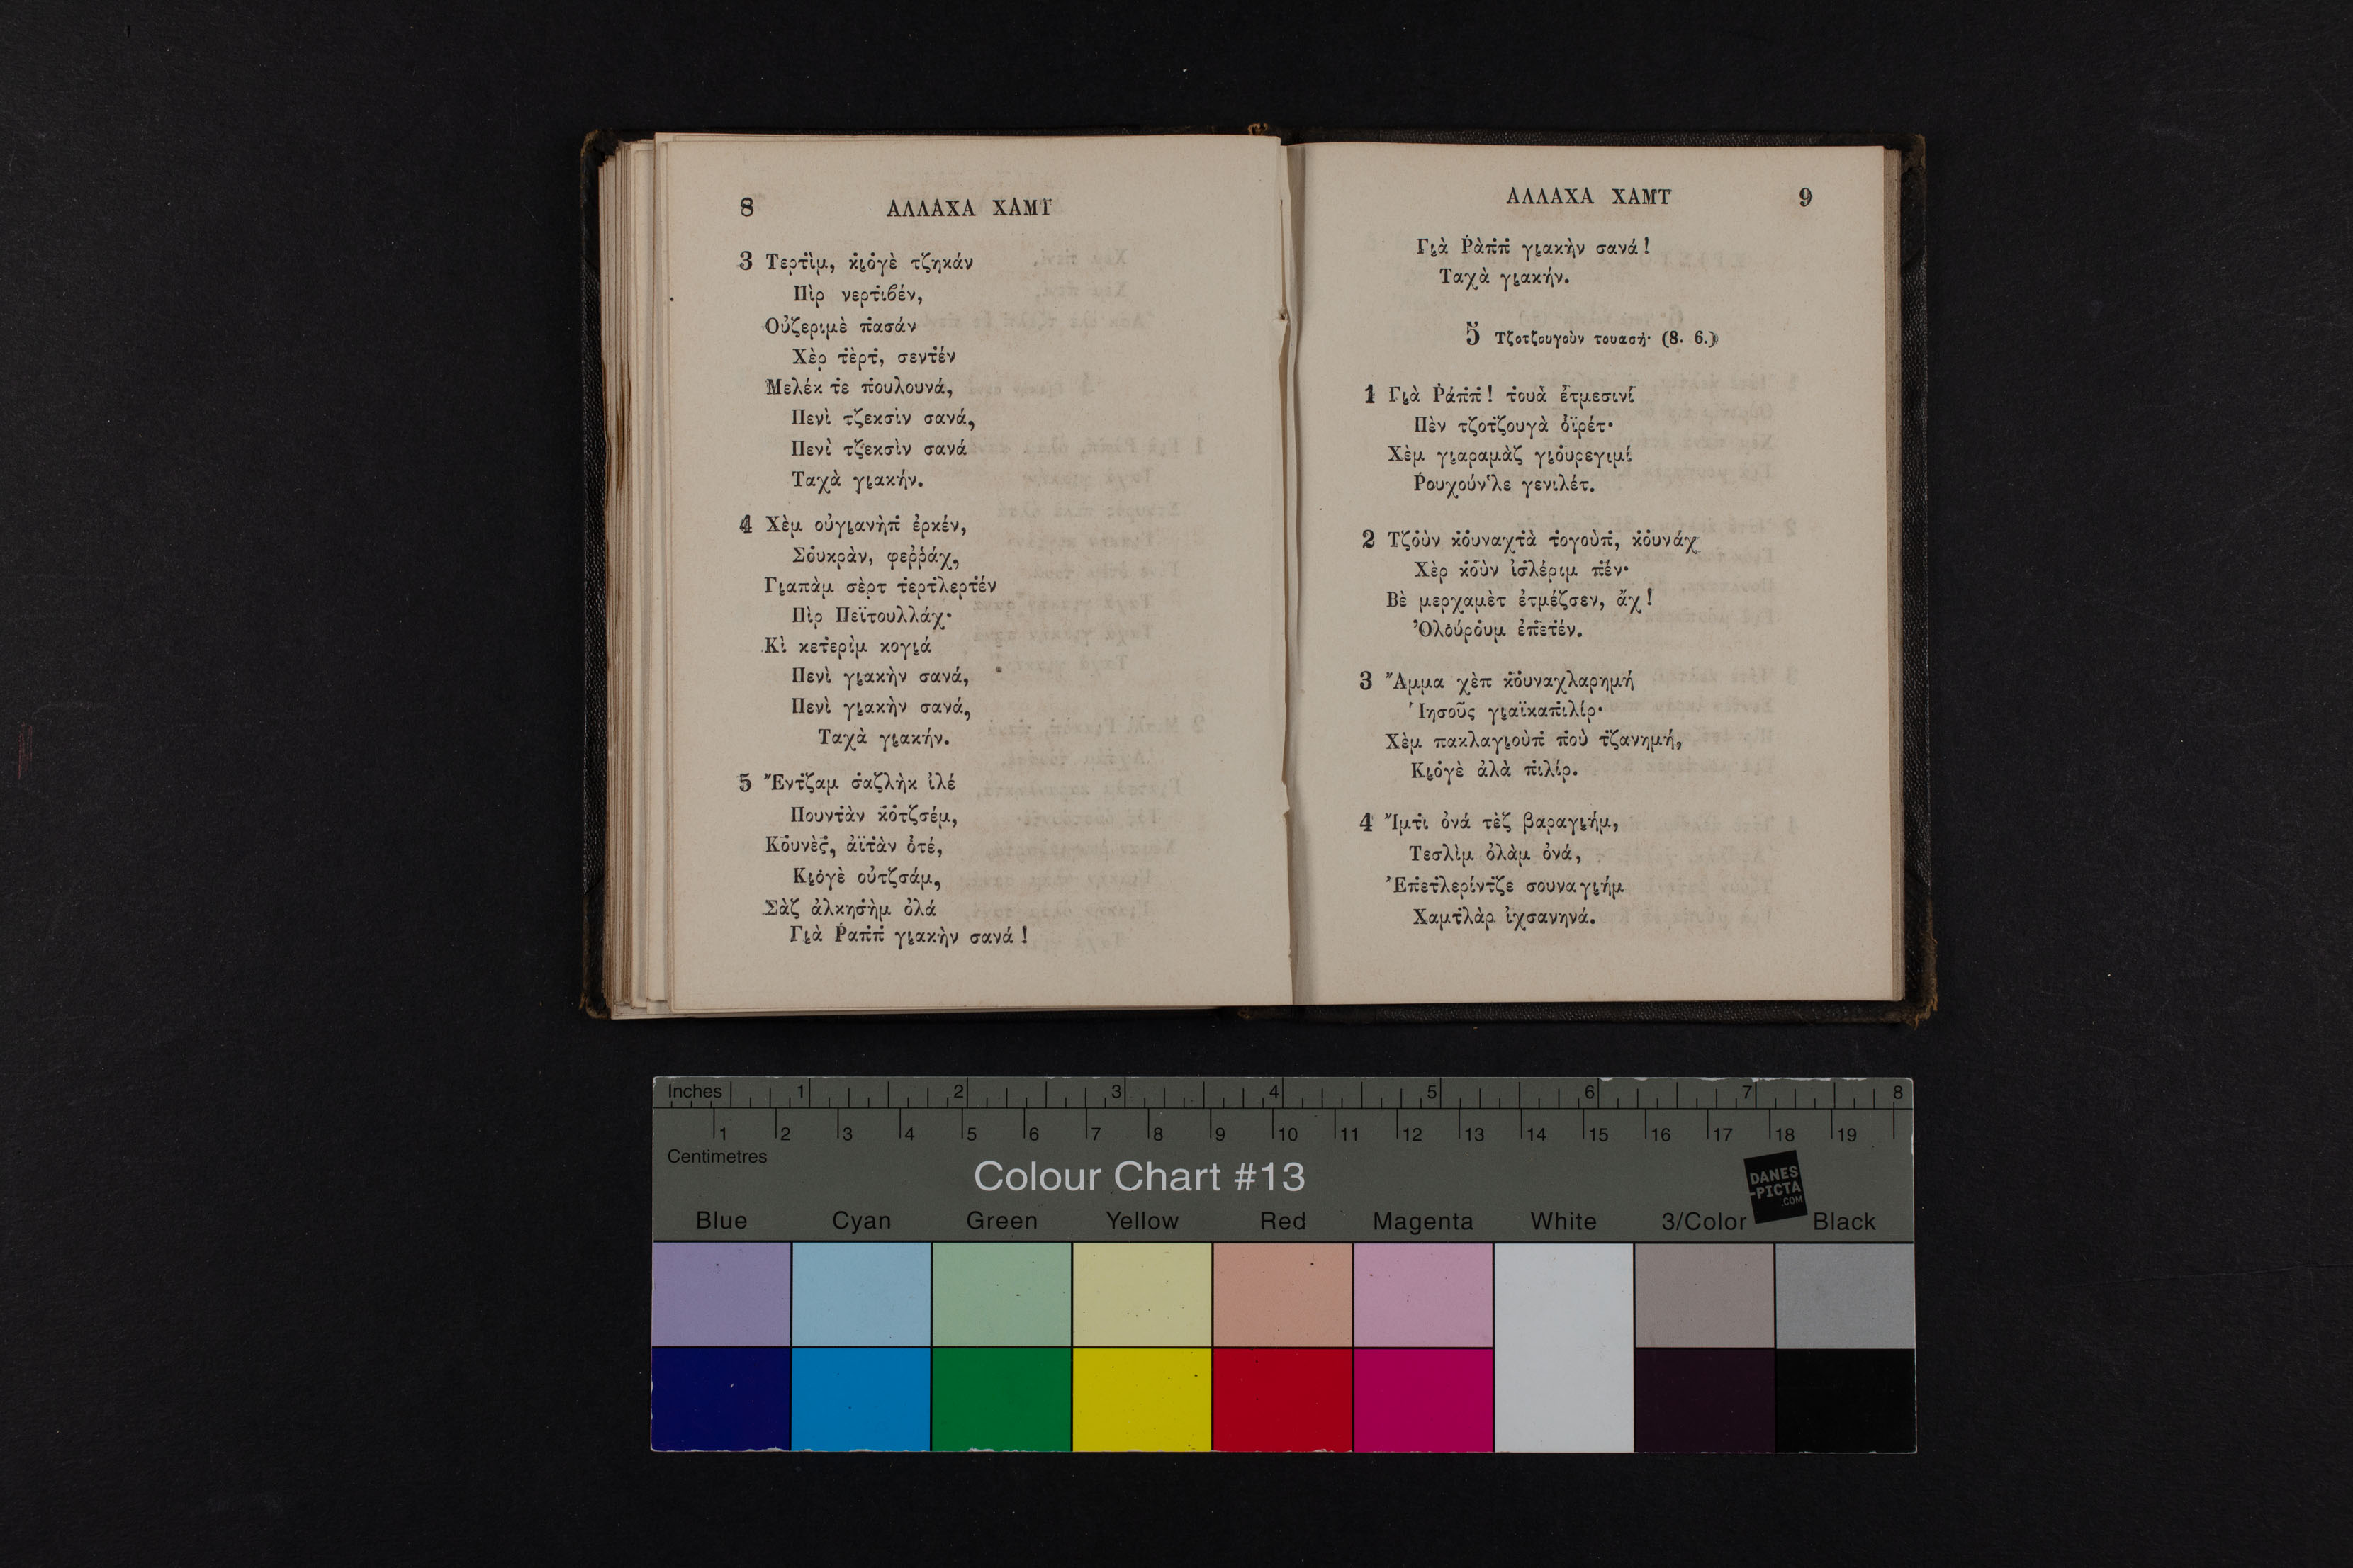 8 ΑΛΛΑΧΑ ΧΑΜΤ
3 Τερτὶμ, κι̨ο̇γὲ τζηκάν
Πὶρ νερτιβέν,
Οὐζεριμὲ π̇ασάν
Χὲρ τ̇ὲρτ, σεντ̇έν
Μελέκ τ̇ε π̇ουλουνά,
Πενὶ τζεκσὶν σανά,
Πενὶ τζεκσὶν σανά
Ταχὰ γι̨ακήν.
4 Χὲμ οὐγι̨ανὴπ̇ ἐρκέν,
Σο̇υκρὰν, φεῤῥάχ,
Γι̨απὰμ σὲρτ τ̇ερτ̇λερτ̇έν
Πὶρ Πεϊτουλλάχ·
Κὶ κετ̇ερὶμ κογι̨ά
Πενὶ γι̨ακὴν σανά,
Πενὶ γι̨ακὴν σανά,
Ταχὰ γι̨ακήν.
5 Ἔντζαμ σ̇αζλὴκ ἰλέ
Πουντ̇ὰν κο̇τζσέμ,
Κο̇υνὲς̇, ἀϊτ̇ὰν ὀτέ,
Κι̨ο̇γὲ οὐτζσάμ,
Σὰζ ἀλκησ̇ὴμ ὀλά
Γι̨ὰ Ῥαπ̇π̇ γι̨ακὴν σανά!
ΑΛΛΑΧΑ ΧΑΜΤ 9
Γι̨ὰ Ῥὰπ̇π̇ γι̨ακὴν σανά!
Ταχὰ γι̨ακήν.
5 Τζοτζουγοὺν τουασή· (8. 6.)
1 Γι̨ὰ Ῥάπ̇π̇! τ̇ουἀ ἐτμεσινί
Πὲν τζοτζουγὰ ὀϊρέτ·
Χὲμ γι̨αραμὰζ γιο̇υρεγιμί
Ῥουχούν'λε γενιλέτ.
2 Τζο̇ὺν κο̇υναχτ̇ὰ τ̇ογοὺπ̇, κο̇υνάχ
Χὲρ κο̇ὺν ἰσ̇λέριμ π̇έν·
Βὲ μερχαμὲτ ἐτμέζσεν, ἄχ!
Ὀλο̇ύρο̇υμ ἐπ̇ετ̇έν.
3 Ἄμμα χὲπ κο̇υναχλαρημή
Ἰησοῦς γι̨αϊκαπ̇ιλίρ·
Χὲμ πακλαγι̨οὺπ̇ π̇οὺ τζανημή,
Κι̨ο̇γὲ ἀλὰ π̇ιλίρ.
4 Ἴμτ̇ι ὀνά τὲζ βαραγι̨ήμ,
Τεσλὶμ ὀλὰμ ὀνά,
Ἐπ̇ετ̇λερίντζε σουναγι̨ήμ
Χαμτ̇λὰρ ἰχσανηνά.
Inches 1 2 3 4 5 6 7 8
1 2 3 4 5 6 7 8 9 10 11 12 13 14 15 16 17 18 19
Centimetres
Colour Chart #13
DANES
-PICTA
.COM
Blue Cyan Green Yellow Red Magenta White 3/Color Black